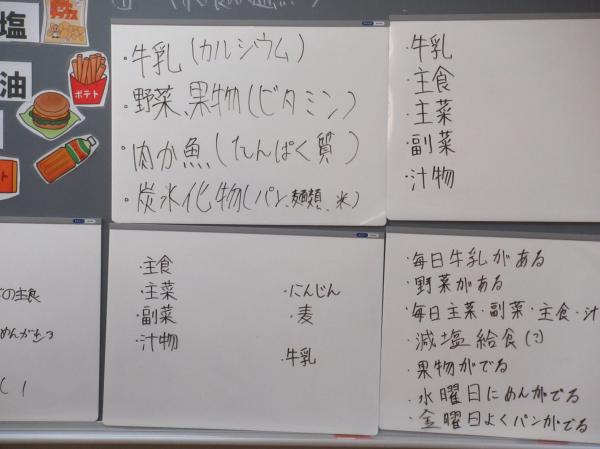 塩
油
ポテト
・牛乳(カルシウム)
・野菜、果物(ビタミン)
・肉か魚(たんぱく質)
・炭水化物(パン、麺類、米)
・牛乳
・主食
・主菜
・副菜
・汁物
の主食
めんがでっ
・主食
・主菜
・副菜
・汁物
・にんじん
・麦
・牛乳
・毎日牛乳がある
・野菜がある
・毎日主菜・副菜・主食・汁
・減塩給食(?)
・果物がでる
・水曜日にめんがでる
・金曜日よくパンがでる